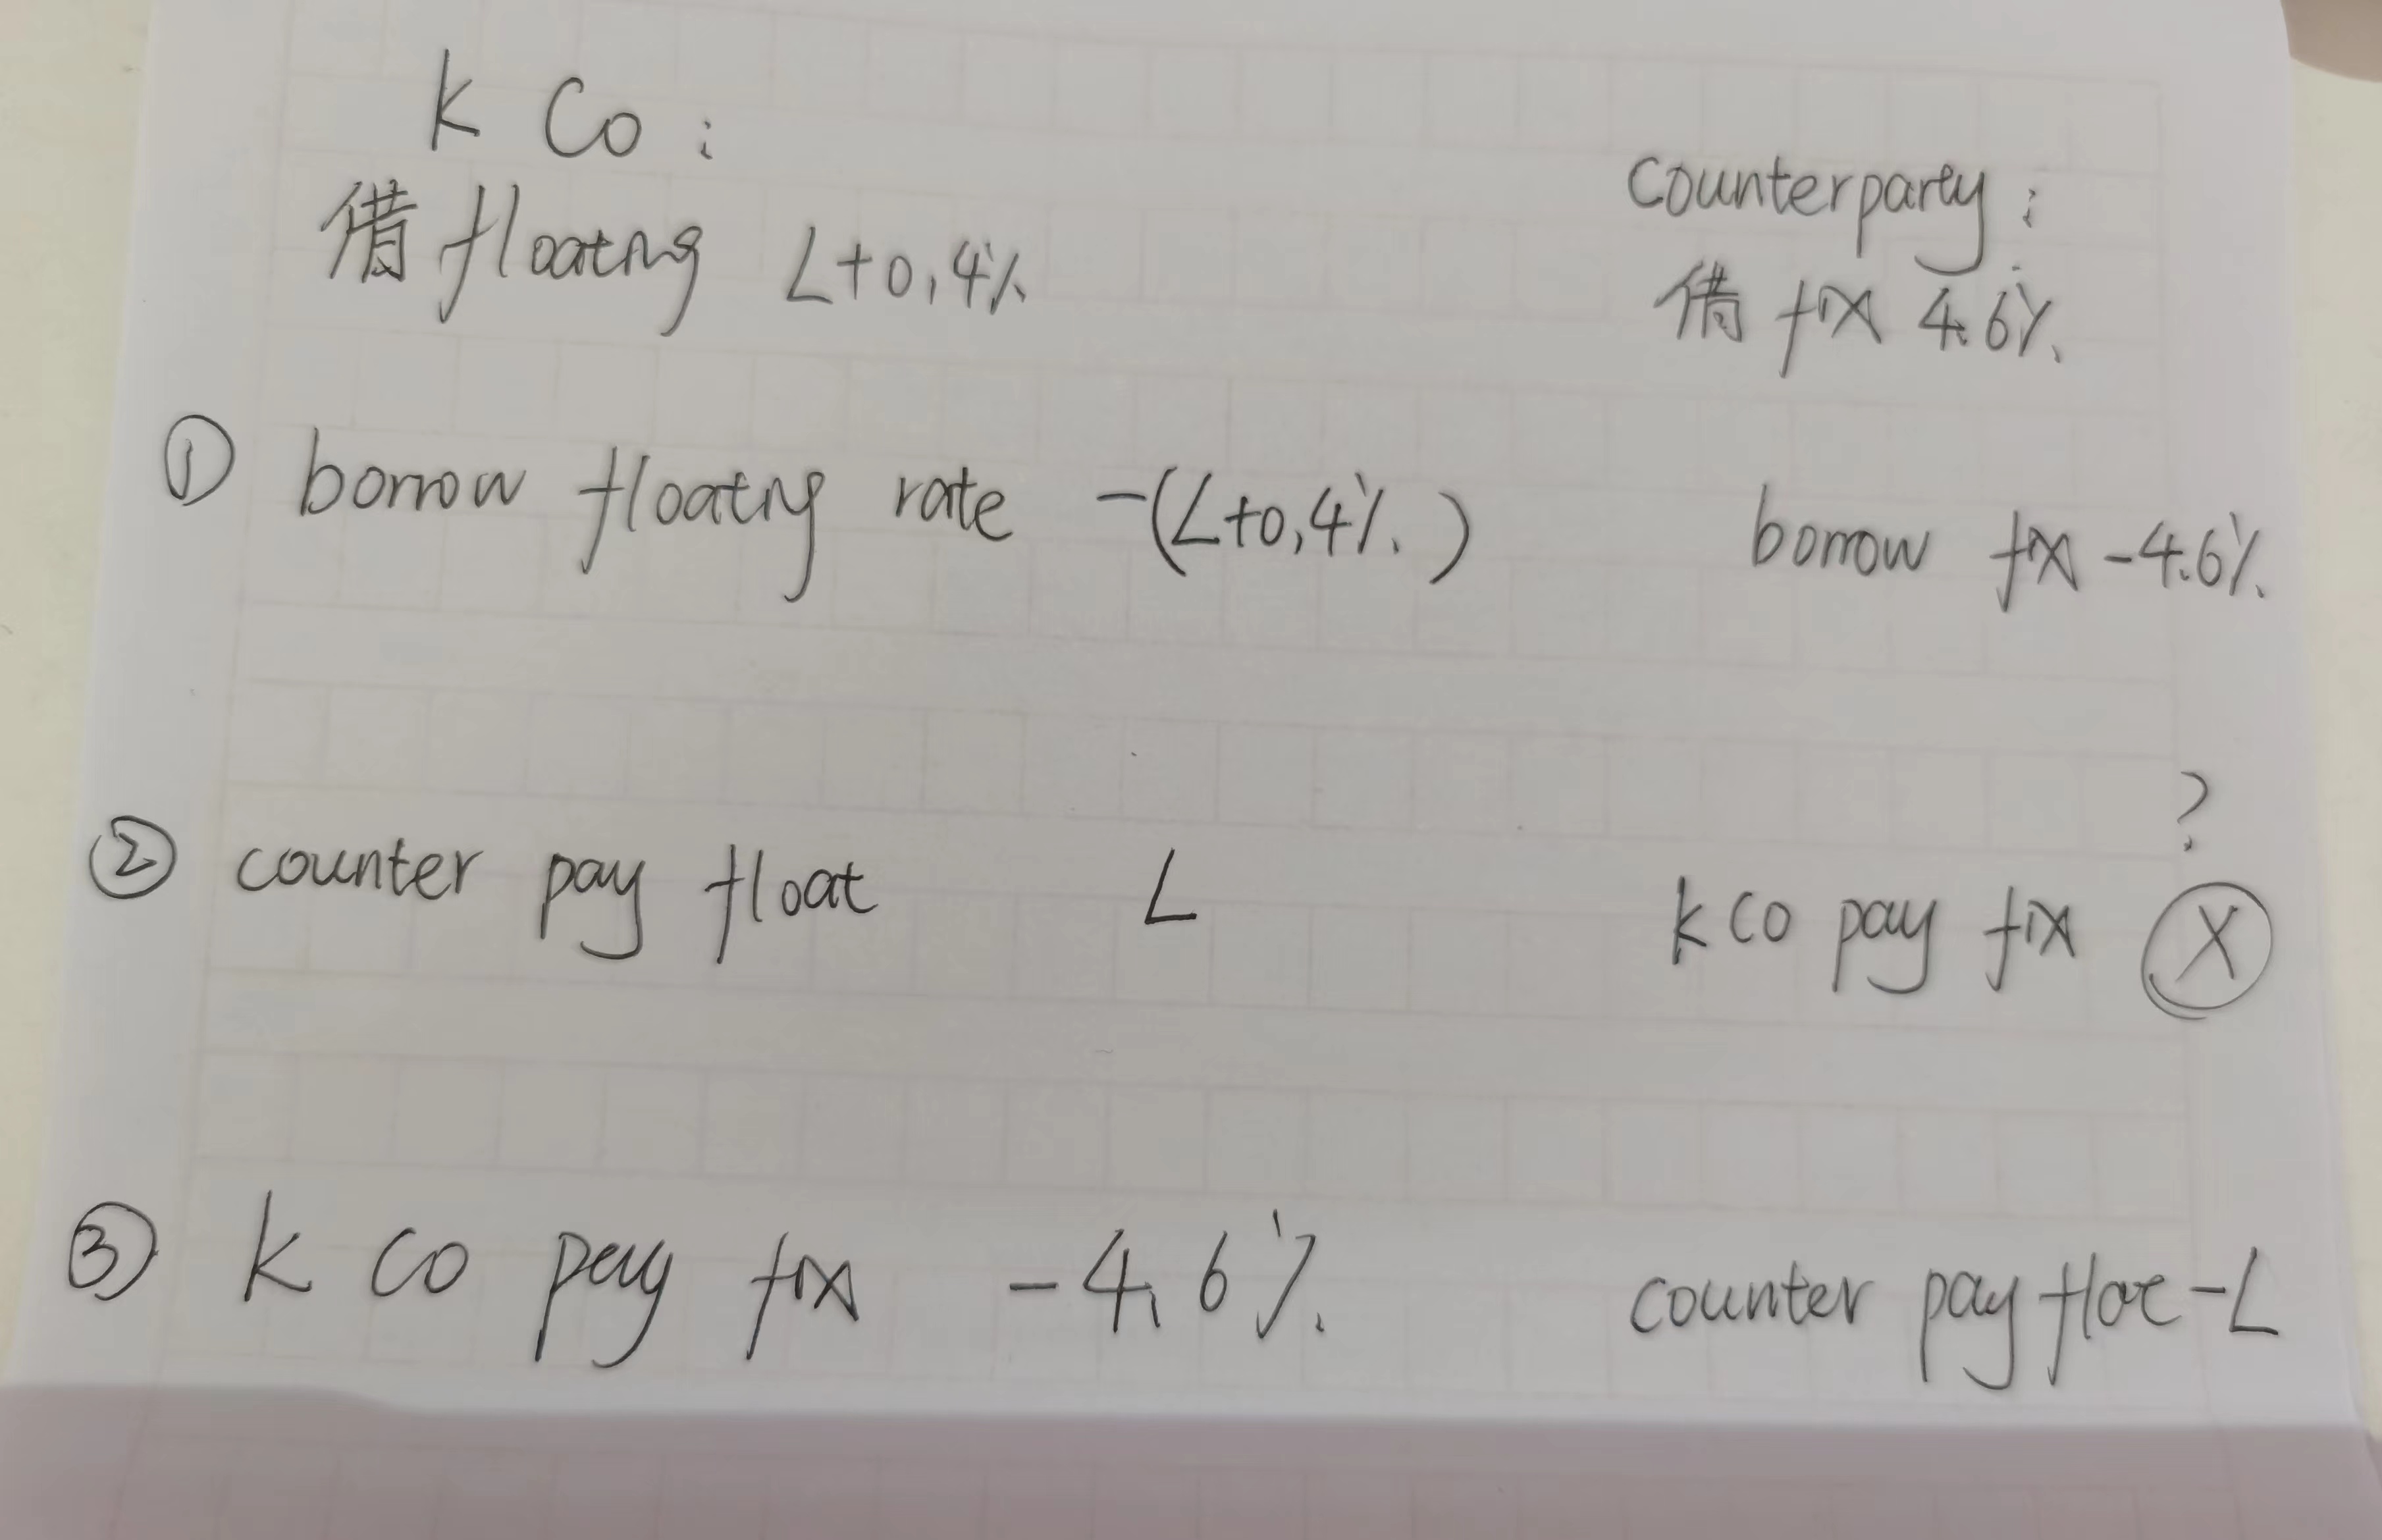 K Co :
借 floating L+0.4%
Counterparty :
借 fix 4.6%
① borrow floating rate -(L+0.4%)
borrow fix -4.6%
② counter pay float L
?
k co pay fix X
③ k co pay fix -4.6%
counter pay float -L